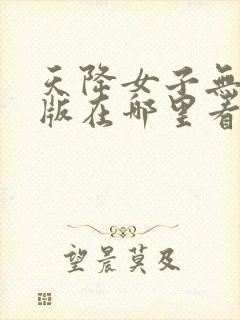 天降女子無
版在哪里看
望晨莫及